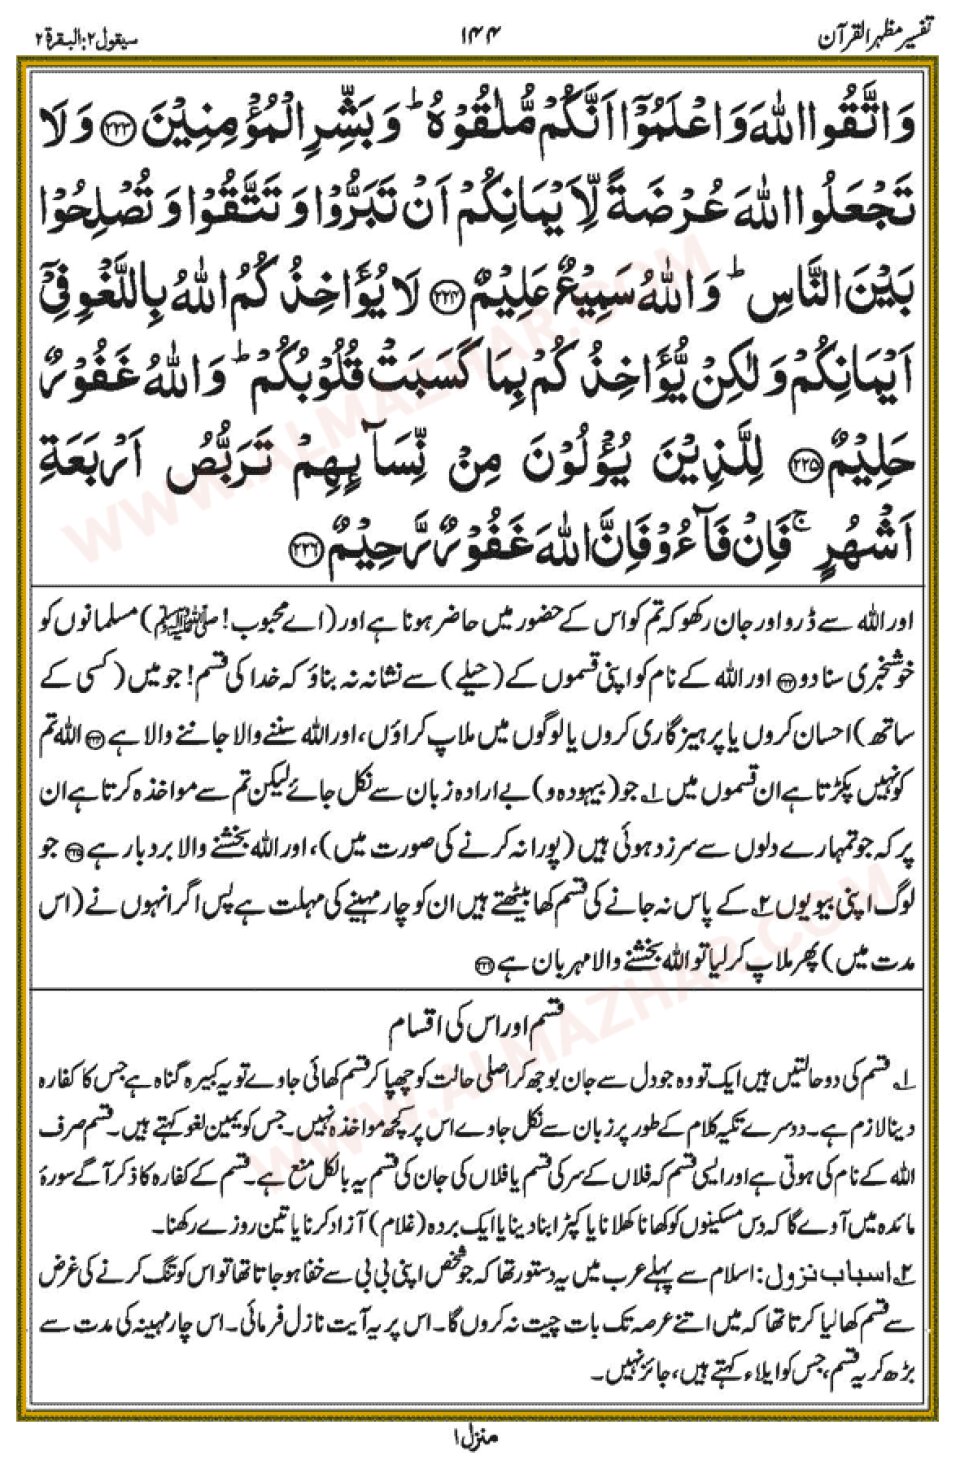 تفسیر مظہر القرآن
۱۴۴
سیقول ۲: البقرۃ ۲
وَاتَّقُوا اللّٰهَ وَاعْلَمُوْۤا اَنَّكُمْ مُّلٰقُوْهُ ؕ وَبَشِّرِ الْمُؤْمِنِيْنَ ﴿۲۲۳﴾ وَلَا
تَجْعَلُوا اللّٰهَ عُرْضَةً لِّاَيْمَانِكُمْ اَنْ تَبَرُّوْا وَتَتَّقُوْا وَتُصْلِحُوْا
بَيْنَ النَّاسِ ؕ وَاللّٰهُ سَمِيْعٌ عَلِيْمٌ ﴿۲۲۴﴾ لَا يُؤَاخِذُكُمُ اللّٰهُ بِاللَّغْوِ فِيْۤ
اَيْمَانِكُمْ وَلٰكِنْ يُّؤَاخِذُكُمْ بِمَا كَسَبَتْ قُلُوْبُكُمْ ؕ وَاللّٰهُ غَفُوْرٌ
حَلِيْمٌ ﴿۲۲۵﴾ لِلَّذِيْنَ يُؤْلُوْنَ مِنْ نِّسَآىِٕهِمْ تَرَبُّصُ اَرْبَعَةِ
اَشْهُرٍ ۚ فَاِنْ فَآءُوْ فَاِنَّ اللّٰهَ غَفُوْرٌ رَّحِيْمٌ ﴿۲۲۶﴾
اور اللہ سے ڈرو اور جان رکھو کہ تم کو اس کے حضور میں حاضر ہونا ہے اور (اے محبوب! ﷺ) مسلمانوں کو
خوشخبری سنا دو ﴿۲۲۳﴾ اور اللہ کے نام کو اپنی قسموں کے (حیلے) سے نشانہ نہ بناؤ کہ خدا کی قسم! جو میں (کسی کے
ساتھ) احسان کروں یا پرہیزگاری کروں یا لوگوں میں ملاپ کراؤں، اور اللہ سننے والا جاننے والا ہے ﴿۲۲۴﴾ اللہ تم
کو نہیں پکڑتا ہے ان قسموں میں ۱؎ جو (بیہودہ و) بے ارادہ زبان سے نکل جائے لیکن تم سے مواخذہ کرتا ہے ان
پر کہ جو تمہارے دلوں سے سرزد ہوئی ہیں (پورا نہ کرنے کی صورت میں)، اور اللہ بخشنے والا بردبار ہے ﴿۲۲۵﴾ جو
لوگ اپنی بیویوں ۲؎ کے پاس نہ جانے کی قسم کھا بیٹھتے ہیں ان کو چار مہینے کی مہلت ہے پس اگر انہوں نے (اس
مدت میں) پھر ملاپ کر لیا تو اللہ بخشنے والا مہربان ہے ﴿۲۲۶﴾
قسم اور اس کی اقسام
۱؎ قسم کی دو حالتیں ہیں ایک تو وہ جو دل سے جان بوجھ کر اصلی حالت کو چھپا کر قسم کھائی جاوے تو یہ کبیرہ گناہ ہے جس کا کفارہ
دینا لازم ہے۔ دوسرے تکیہ کلام کے طور پر زبان سے نکل جاوے اس پر کچھ مواخذہ نہیں۔ جس کو یمین لغو کہتے ہیں۔ قسم صرف
اللہ کے نام کی ہوتی ہے اور ایسی قسم کہ فلاں کے سر کی قسم یا فلاں کی جان کی قسم یہ بالکل منع ہے۔ قسم کے کفارہ کا ذکر آگے سورۂ
مائدہ میں آوے گا کہ دس مسکینوں کو کھانا کھلانا یا کپڑا بنا دینا یا ایک بردہ (غلام) آزاد کرنا یا تین روزے رکھنا۔
۲؎ اسباب نزول: اسلام سے پہلے عرب میں یہ دستور تھا کہ جو شخص اپنی بی بی سے خفا ہو جاتا تھا تو اس کو تنگ کرنے کی غرض
سے قسم کھا لیا کرتا تھا کہ میں اتنے عرصہ تک بات چیت نہ کروں گا۔ اس پر یہ آیت نازل فرمائی۔ اس چار مہینہ کی مدت سے
بڑھ کر یہ قسم، جس کو ایلاء کہتے ہیں، جائز نہیں۔
منزل ۱
WWW.ALMAZHAR.COM
WWW.ALMAZHAR.COM